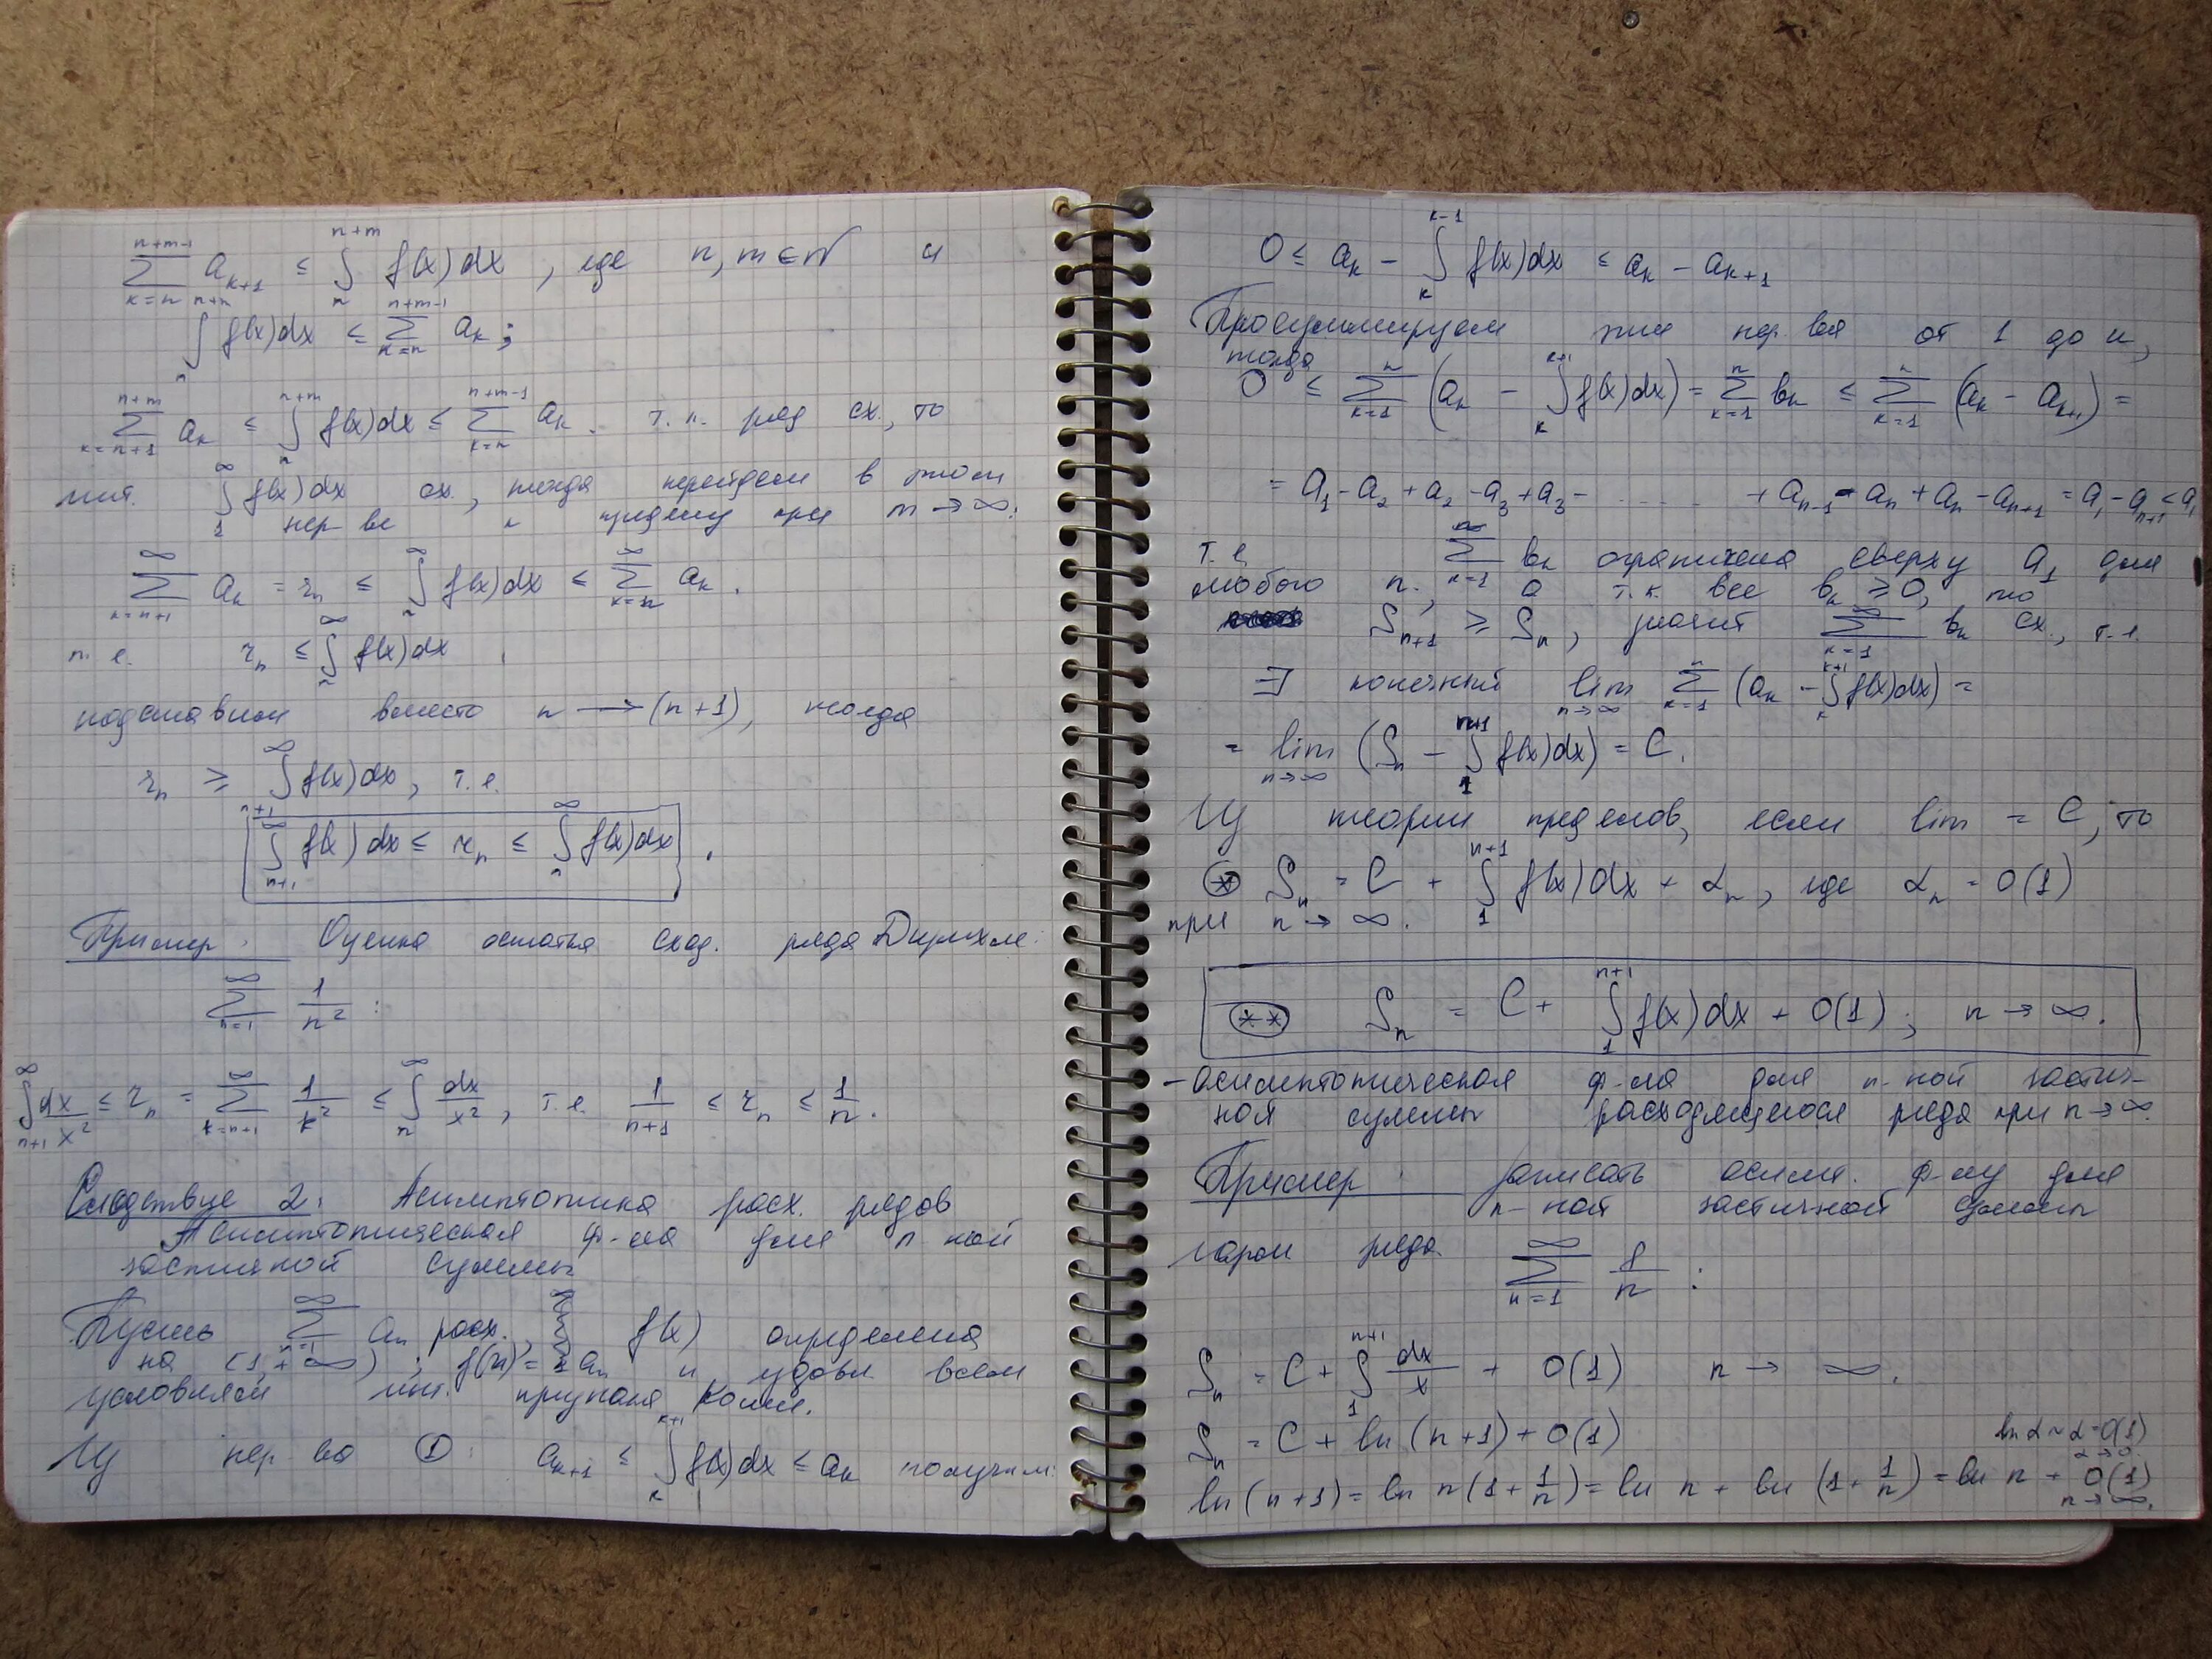 ∑_{k=n}^{n+m-1} a_{k+1} ≤ ∫_n^{n+m} f(x)dx , где n, m ∈ N и
∫_n^{n+m} f(x)dx ≤ ∑_{k=n}^{n+m-1} a_k ;
∑_{k=n+1}^{n+m} a_k ≤ ∫_n^{n+m} f(x)dx ≤ ∑_{k=n}^{n+m-1} a_k . т.к. ряд сх., то
инт. ∫_1^∞ f(x)dx сх., тогда перейдем в этом
нер-ве к пределу при m → ∞:
∑_{k=n+1}^∞ a_k = r_n ≤ ∫_n^∞ f(x)dx ≤ ∑_{k=n}^∞ a_k .
т. е. r_n ≤ ∫_n^∞ f(x)dx .
подставим вместо n → (n+1), тогда
r_n ≥ ∫_{n+1}^∞ f(x)dx, т.е.
∫_{n+1}^∞ f(x)dx ≤ r_n ≤ ∫_n^∞ f(x)dx .
Пример. Оценка остатка сход. ряда Дирихле:
∑_{n=1}^∞ 1/n² :
∫_{n+1}^∞ dx/x² ≤ r_n = ∑_{k=n+1}^∞ 1/k² ≤ ∫_n^∞ dx/x² , т.е. 1/(n+1) ≤ r_n ≤ 1/n .
Следствие 2: Асимптотика расх. рядов
Асимптотическая ф-ла для n-ной
частичной суммы
Пусть ∑_{n=1}^∞ a_n расх., f(x) определена
на [1, +∞) ; f(n) = a_n и удовл. всем
условиям инт. признака Коши.
Из нер-ва ①: a_{k+1} ≤ ∫_k^{k+1} f(x)dx ≤ a_k получим:
0 ≤ a_k - ∫_k^{k-1} f(x)dx ≤ a_k - a_{k+1}
Просуммируем эти нер-ва от 1 до n,
тогда
0 ≤ ∑_{k=1}^n (a_k - ∫_k^{k+1} f(x)dx) = ∑_{k=1}^n b_k ≤ ∑_{k=1}^n (a_k - a_{k+1}) =
= a_1 - a_2 + a_2 - a_3 + a_3 - ..... + a_{n-1} - a_n + a_n - a_{n+1} = a_1 - a_{n+1} < a_1
т.е. ∑_{k=1}^n b_k ограничена сверху a_1 для
любого n., а т.к. все b_k ≥ 0, то
S_{n+1} ≥ S_n, значит ∑_{k=1}^∞ b_k сх., т.е.
∃ конечный lim_{n→∞} ∑_{k=1}^n (a_k - ∫_k^{k+1} f(x)dx) =
= lim_{n→∞} (S_n - ∫_1^{n+1} f(x)dx) = C.
Из теории пределов, если lim = C, то
⊛ S_n = C + ∫_1^{n+1} f(x)dx + α_n, где α_n = o(1)
при n → ∞.
(**) S_n = C + ∫_1^{n+1} f(x)dx + o(1) ; n → ∞.
- асимптотическая ф-ла для n-ной частич-
ной суммы расходящегося ряда при n → ∞.
Пример. Записать асимп. ф-лу для
n-ной частичной суммы
гарм ряда. ∑_{n=1}^∞ 1/n :
S_n = C + ∫_1^{n+1} dx/x + o(1) n → ∞.
S_n = C + ln (n+1) + o(1)
ln (n+1) = ln n(1 + 1/n) = ln n + ln (1 + 1/n) = ln n + o(1) n → ∞.